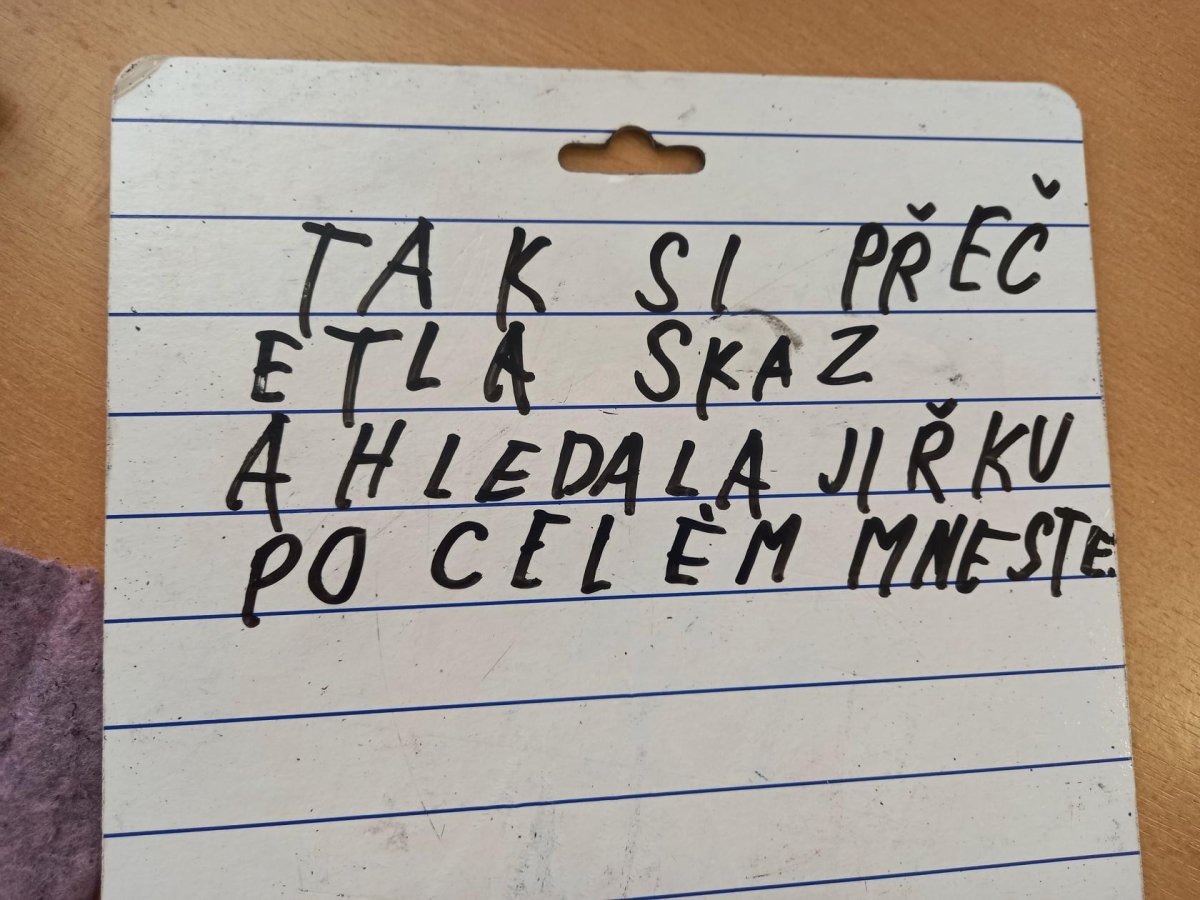 TAK SI PŘEČ
ETLA SKAZ
A HLEDALA JIŘKU
PO CELÉM MNESTE.